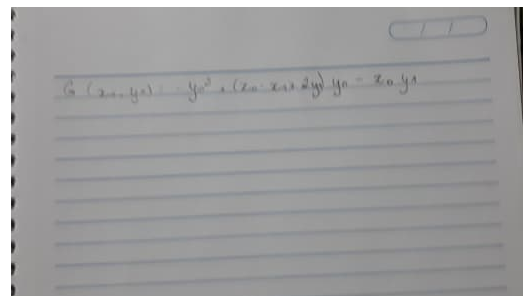 G (x₁, y₁) : y₀² + (x₀ - x₁ + 2y₁) y₀ - x₀ y₁